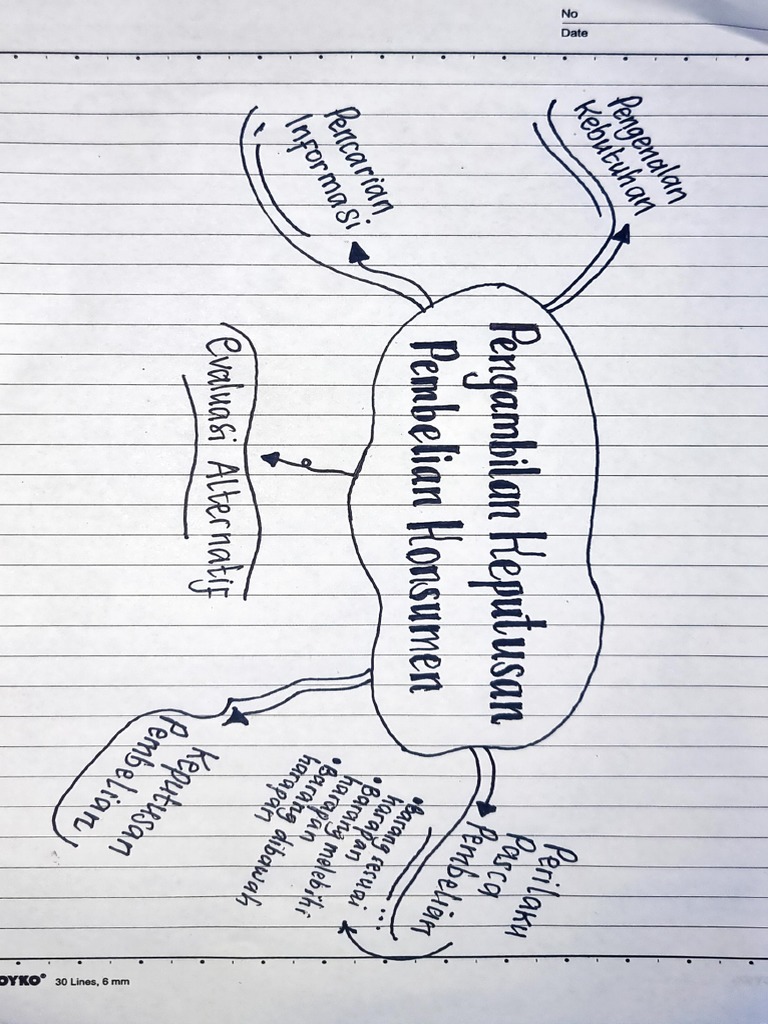 No
Date
Pengenalan
Kebutuhan
Pencarian
Informasi
Pengambilan Keputusan
Pembelian Konsumen
Evaluasi Alternatif
Keputusan
Pembelian
Perilaku
Pasca
Pembelian
• Barang sesuai
harapan
• Barang melebihi
harapan
• Barang dibawah
harapan
OYKO® 30 Lines, 6 mm